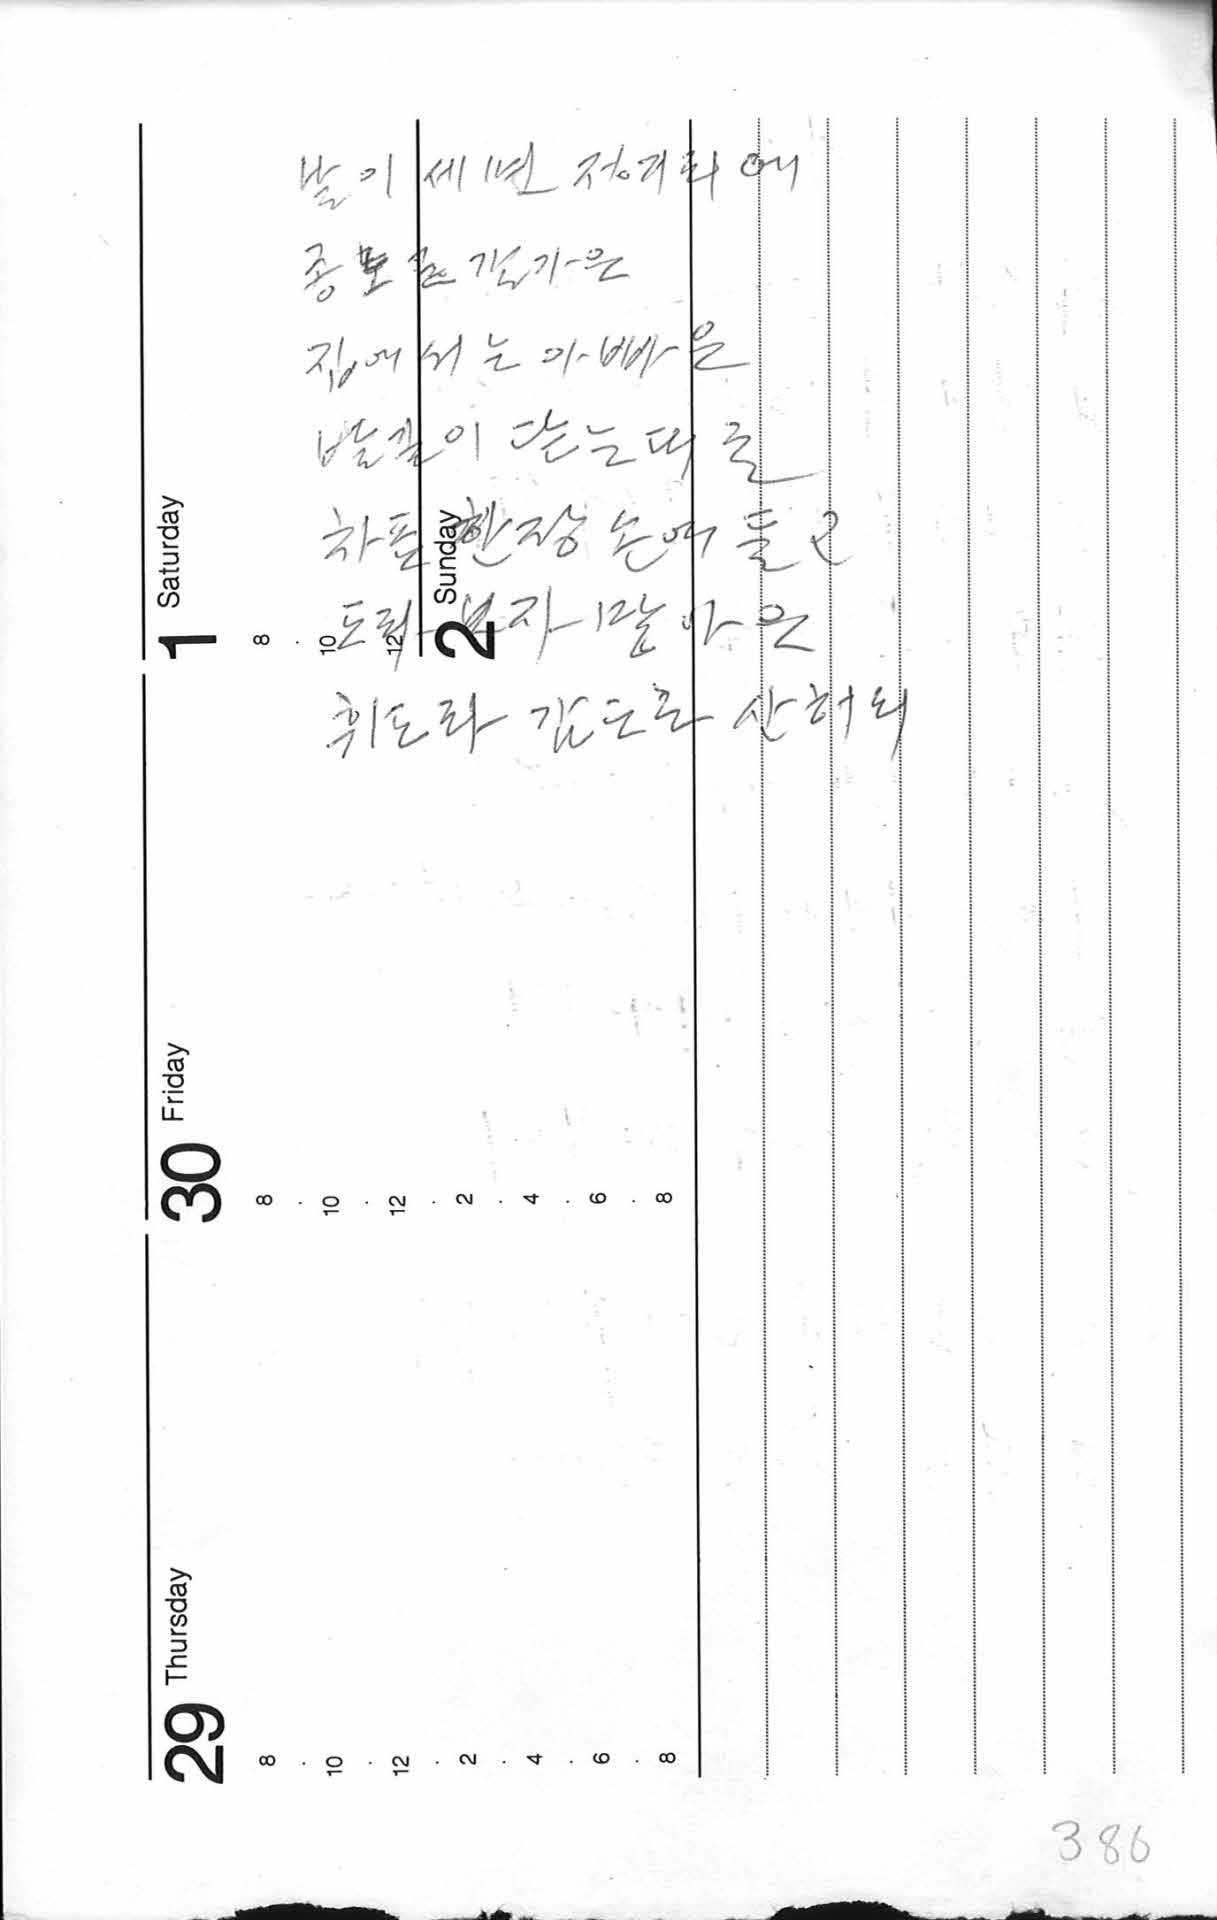 날이 세면 정거리에
종로길 갑가은
집에서는 아빠은
발길이 닫는데로
차표 한장 손에 들고
도라 보자 말아은
휘도라 감도른 산허리
1 Saturday
8 · 10 · 12
2 Sunday
30 Friday
8 · 10 · 12 · 2 · 4 · 6 · 8
29 Thursday
8 · 10 · 12 · 2 · 4 · 6 · 8
386